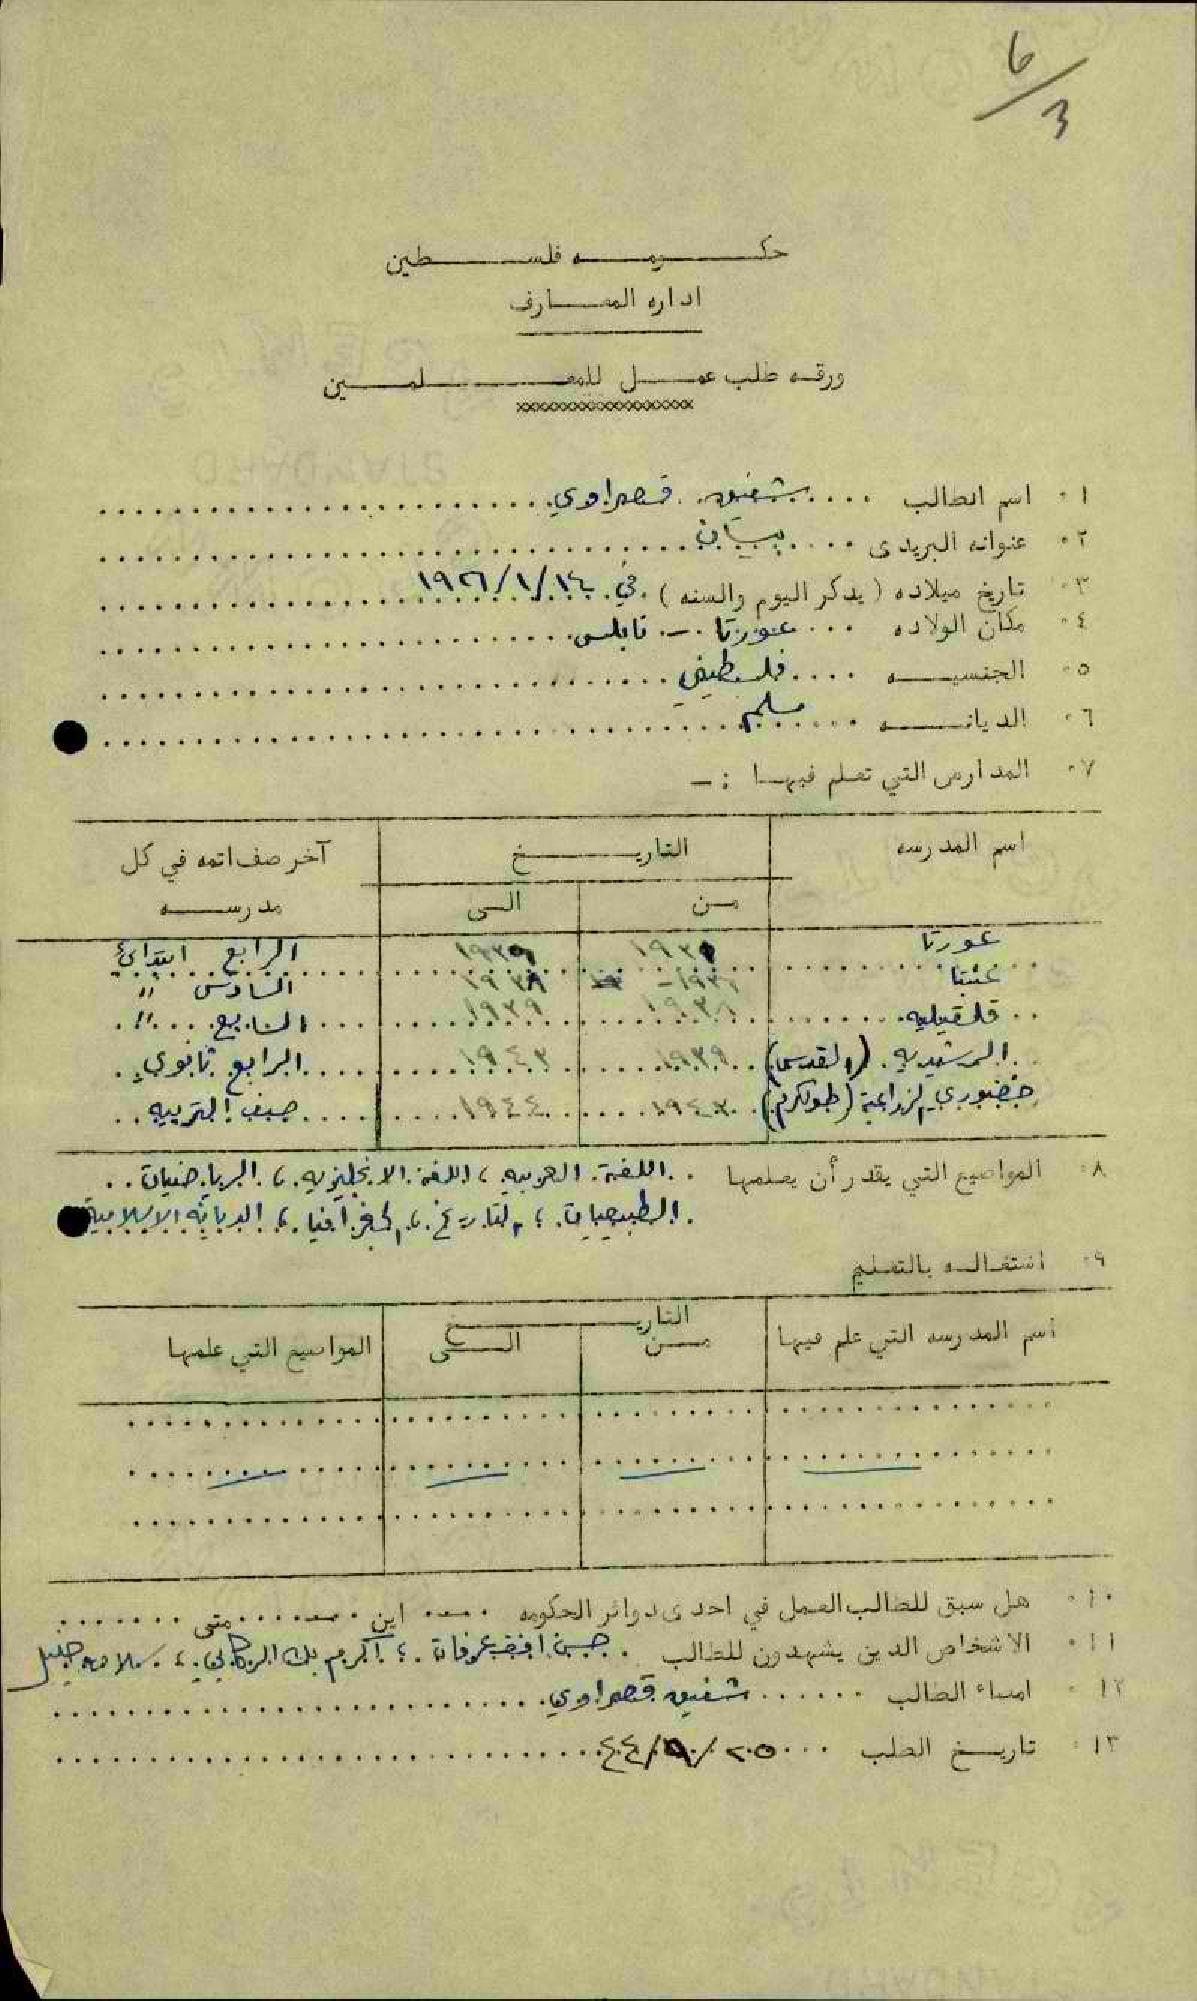 6/3
حكومه فلسطين
اداره المعارف
ورقه طلب عمل للمعلمين
xxxxxxxxxxxxxxxxxxx
١٠ اسم الطالب .... شفيق قصراوي
٢٠ عنوانه البريدى .... بيسان
٣٠ تاريخ ميلاده ( يذكر اليوم والسنه ) في ١٤/١/١٩٢٦
٤٠ مكان الولاده ... عورتا - نابلس
٥٠ الجنسيه .... فلسطيني
٦٠ الديانه .... مسلم
٧٠ المدارس التي تعلم فيها : -
اسم المدرسه التاريخ آخر صف اتمه في كل مدرسه
من الى
عورتا ١٩٣٥ الرابع ابتدائي
عنبتا ١٩٣٦ - ١٩٣٨ السادس "
قلقيليه ١٩٣٨ ١٩٣٩ السابع "
الرشيديه (القدس) ١٩٣٩ ١٩٤٣ الرابع ثانوي
خضوري الزراعية (طولكرم) ١٩٤٣ ١٩٤٤ صف التربيه
٨٠ المواضيع التي يقدر أن يعلمها .. اللغة العربيه ، اللغة الانجليزيه ، الرياضيات ..
الطبيعيات ، التاريخ ، الجغرافيا ، الديانه الاسلامية
٩٠ اشتغاله بالتعليم
اسم المدرسه التي علم فيها التاريخ المواضيع التي علمها
من الى
١٠٠ هل سبق للطالب العمل في احدى دوائر الحكومه ..—.. اين ..—.. متى ......
١١٠ الاشخاص الذين يشهدون للطالب . حسن افندي عرفات ، اكرم بك الركابي ،
١٢٠ امضاء الطالب ...... شفيق قصراوي
١٣٠ تاريخ الطلب ... ٢٥/٩/٤٤